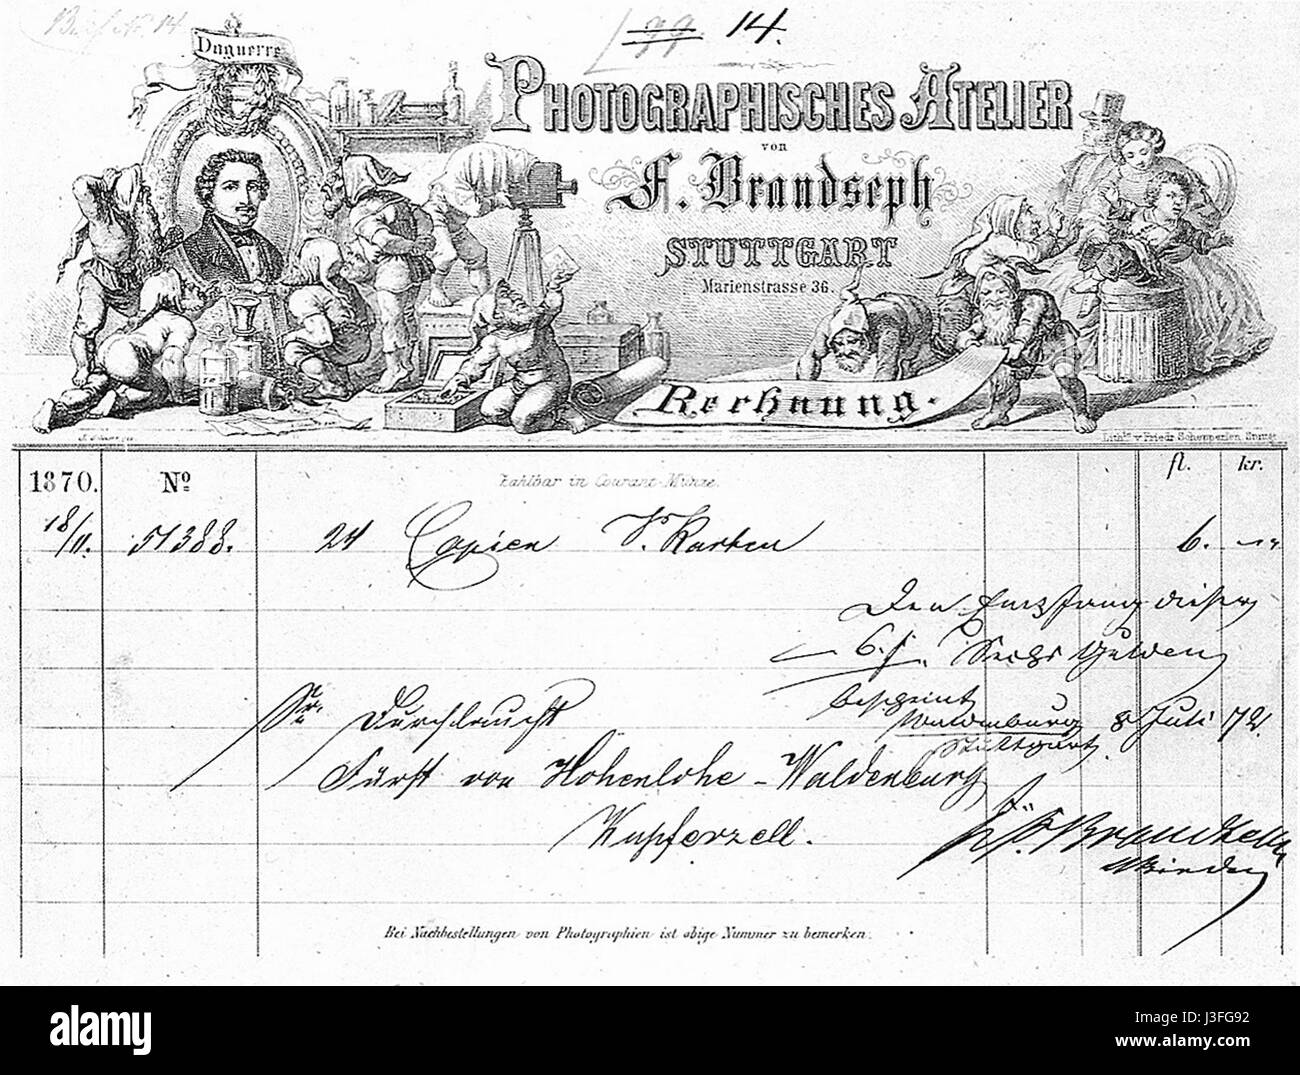 14.
Daguerre
PHOTOGRAPHISCHES ATELIER
von
F. Brandseph
STUTTGART
Marienstrasse 36.
Rechnung.
Lith. v Friedr Schepperlen Stuttg
1870. No Zahlbar in Courant-Münze. fl. kr.
18/11. 51388. 24 Copien V. Karten 6. –
Den Empfang dieser
6 f. Sechs Gulden
bescheint
Waldenburg 8 Juli 72
Stuttgart
Sr Durchlaucht
Fürst von Hohenlohe-Waldenburg
Kupferzell.
Bei Nachbestellungen von Photographien ist obige Nummer zu bemerken.
alamy
Image ID: J3FG92
www.alamy.com